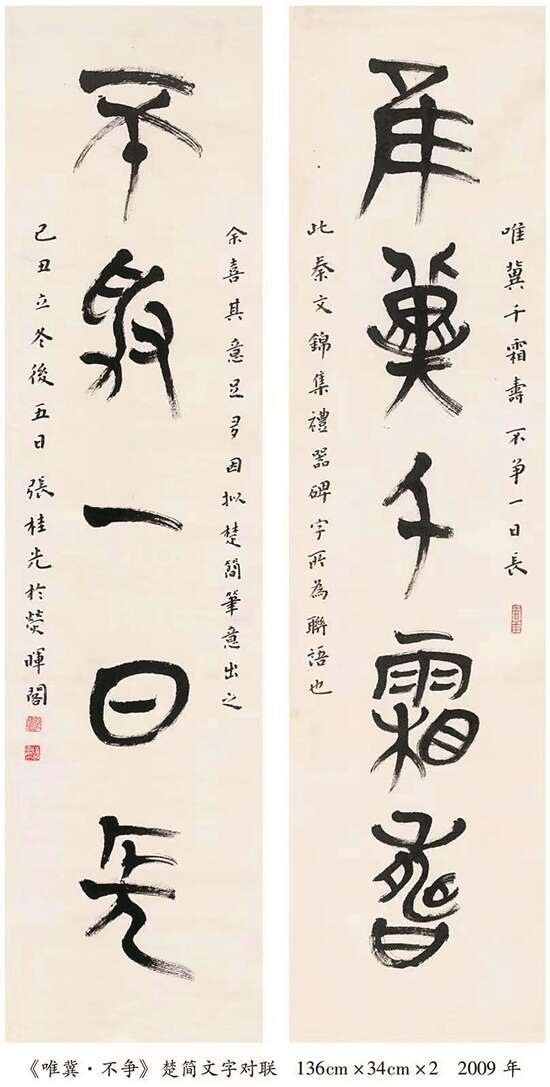 唯冀千霜壽不争一日長
唯冀千霜壽
此秦文錦集禮器碑字所為聯語也
余喜其意足多因拟楚簡筆意出之
不争一日長
己丑立冬後五日張桂光於熒暉閣
《唯冀·不争》楚简文字对联 136cm×34cm×2 2009 年